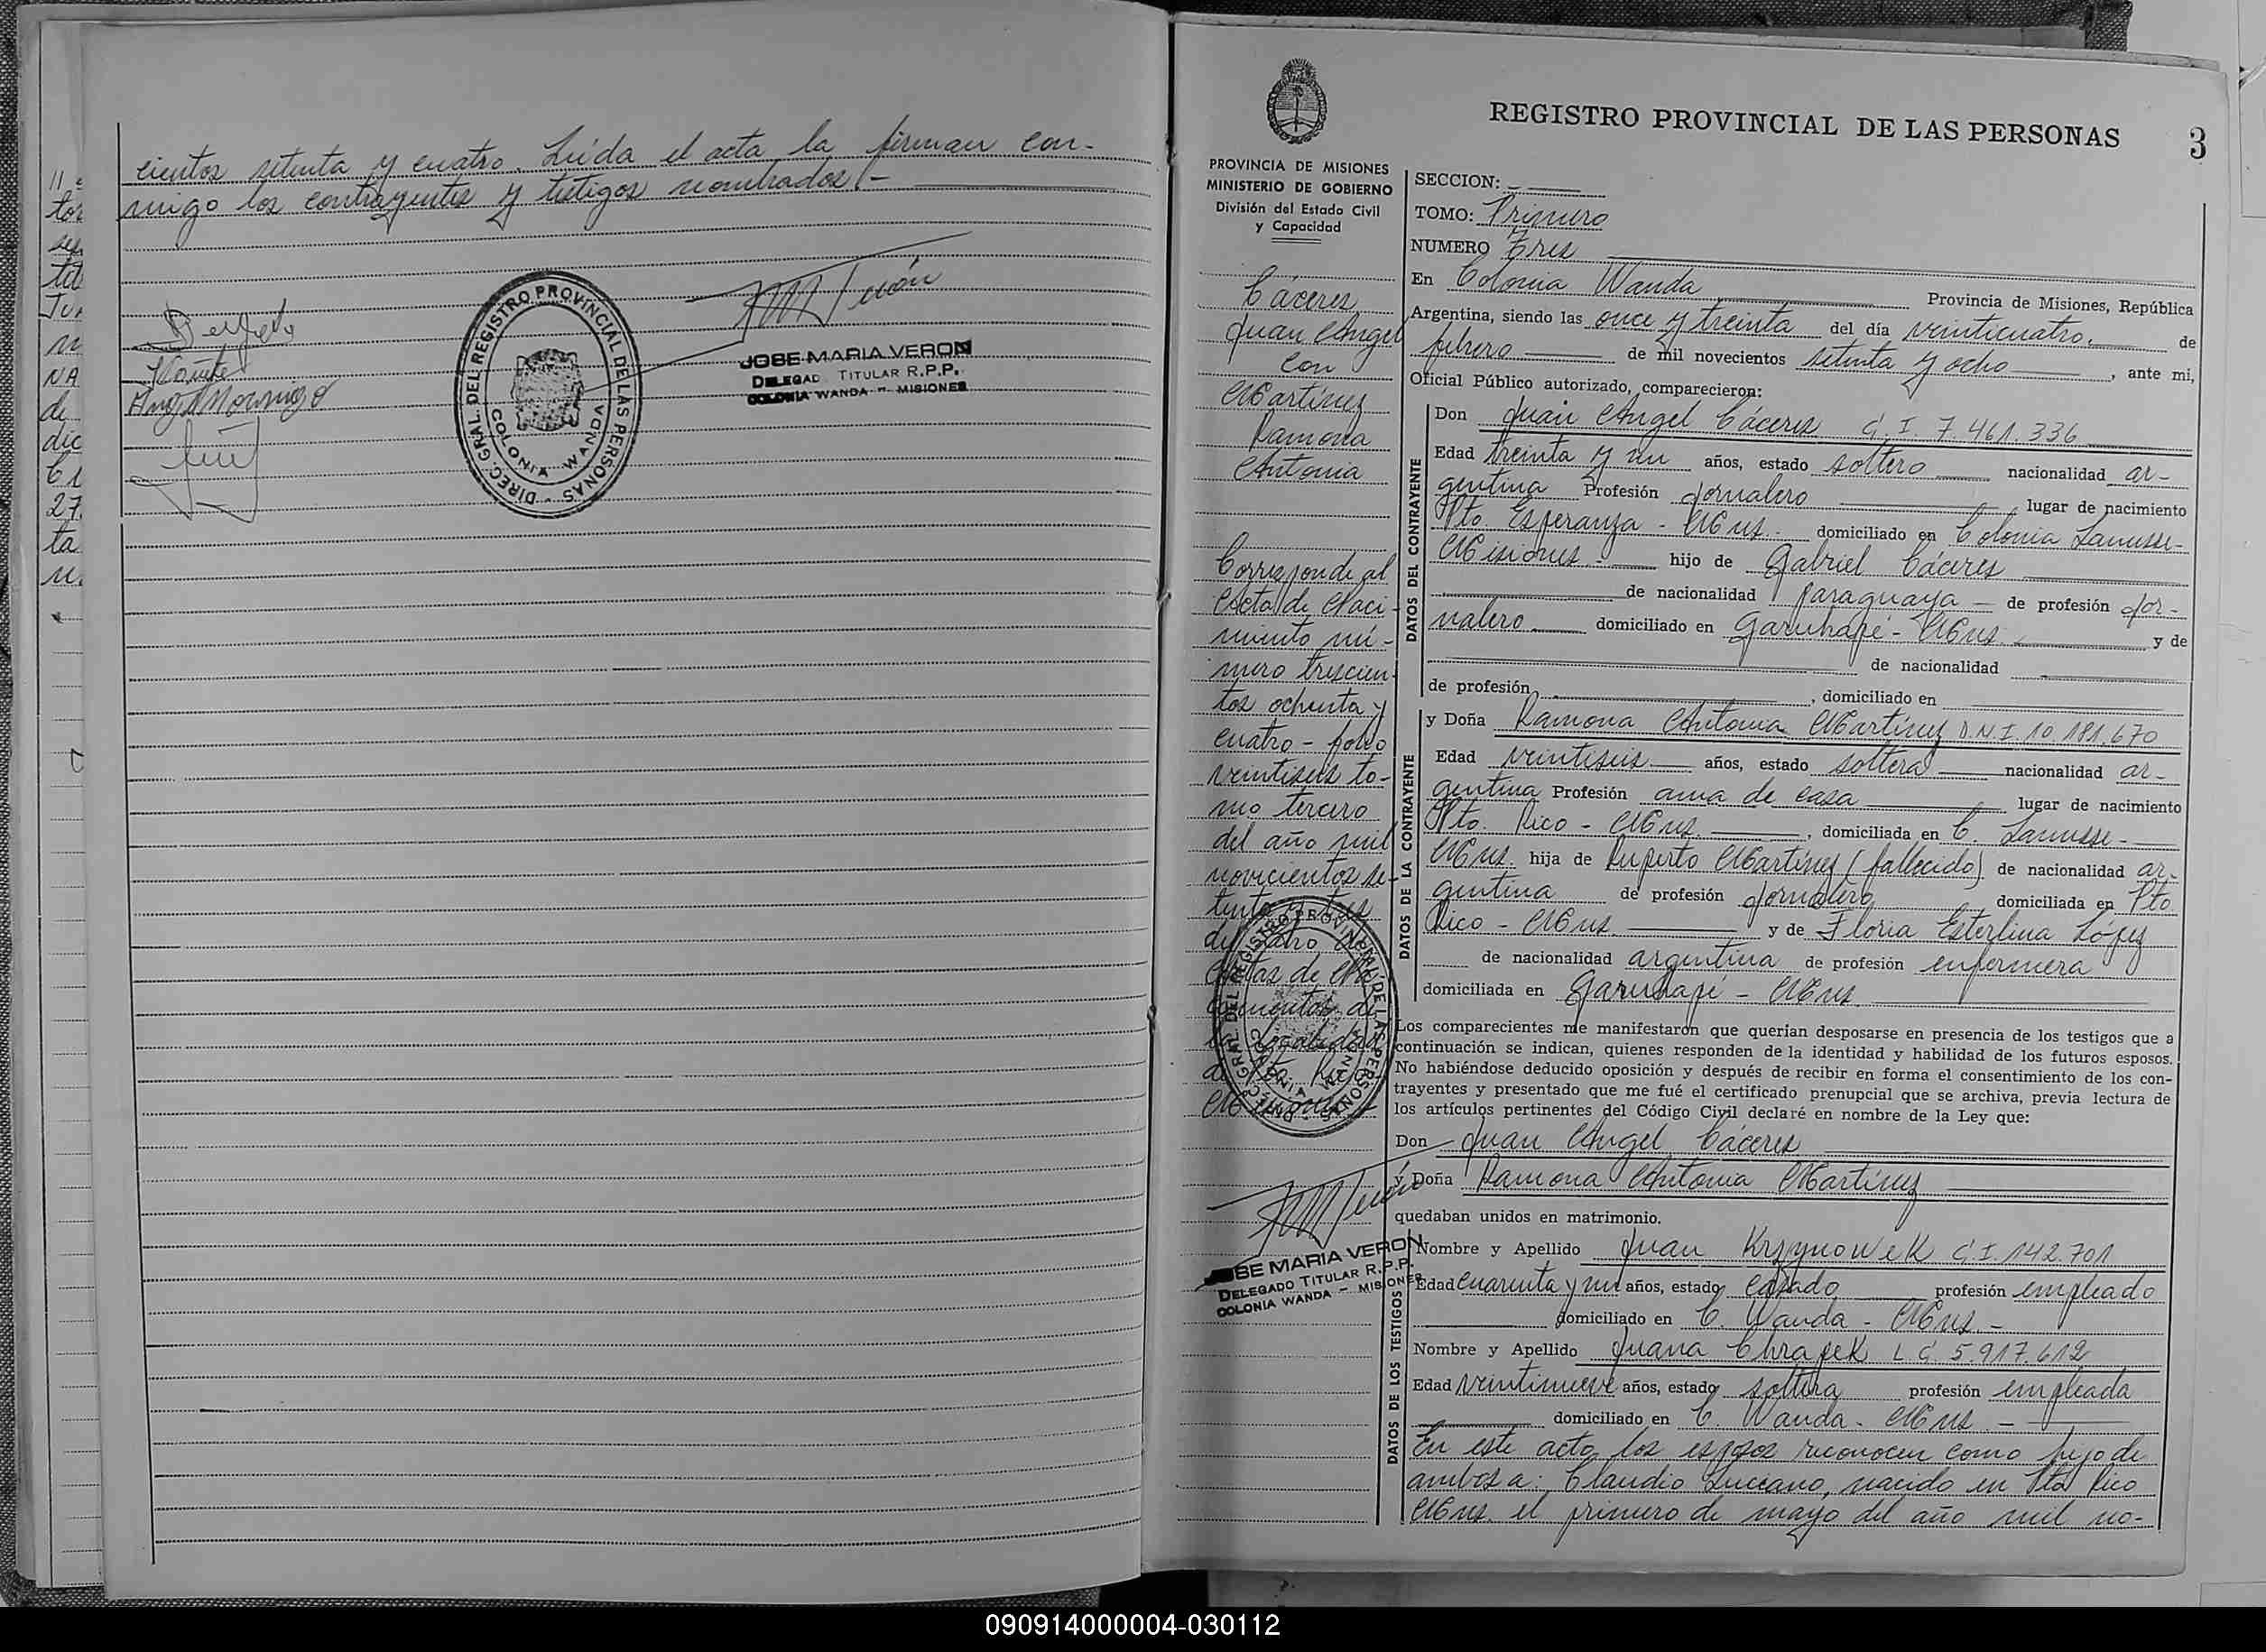 cientos setenta y cuatro. Leída el acta la firman con-
migo los contrayentes y testigos nombrados.-
DIREC. GRAL. DEL REGISTRO PROVINCIAL DE LAS PERSONAS -
COLONIA WANDA
JOSE MARIA VERON
DELEGAD TITULAR R.P.P.
COLONIA WANDA - MISIONES
REGISTRO PROVINCIAL DE LAS PERSONAS
3
PROVINCIA DE MISIONES
MINISTERIO DE GOBIERNO
División del Estado Civil
y Capacidad
Cáceres
Juan Angel
con
Martínez
Ramona
Antonia
Corresponde al
Acta de Naci-
miento nú-
mero trescien-
tos ochenta y
cuatro - folio
veintiseis to-
mo tercero
del año mil
novecientos se-
tenta y tres
del libro de
Actas de Na-
cimientos de
la localidad
de Pto. Rico
Misiones
DIREC. GRAL. DEL REGISTRO PROVINCIAL DE LAS PERSONAS
COLONIA WANDA
JOSE MARIA VERON
DELEGADO TITULAR R.P.P.
COLONIA WANDA - MISIONES
SECCION: -
TOMO: Primero
NUMERO Tres
En Colonia Wanda Provincia de Misiones, República
Argentina, siendo las once y treinta del día veinticuatro. de
febrero de mil novecientos setenta y ocho, ante mi,
Oficial Público autorizado, comparecieron:
DATOS DEL CONTRAYENTE
Don Juan Angel Cáceres C.I. 7.461.336
Edad treinta y un años, estado soltero nacionalidad ar-
gentina Profesión Jornalero lugar de nacimiento
Pto. Esperanza - Mns. domiciliado en Colonia Lanusse-
Misiones - hijo de Gabriel Cáceres
de nacionalidad paraguaya - de profesión Jor-
nalero domiciliado en Garuhapé - Mns. y de
de nacionalidad
de profesión, domiciliado en
DATOS DE LA CONTRAYENTE
y Doña Ramona Antonia Martínez D.N.I. 10.181.670
Edad veintiseis años, estado soltera nacionalidad ar-
gentina Profesión ama de casa lugar de nacimiento
Pto. Rico - Mns., domiciliada en C. Lanusse-
Mns. hija de Ruperto Martínez (fallecido) de nacionalidad ar-
gentina de profesión Jornalero domiciliada en Pto.
Rico - Mns. y de Floria Esterlina López
de nacionalidad argentina de profesión enfermera
domiciliada en Garuhapé - Mns.
Los comparecientes me manifestaron que querían desposarse en presencia de los testigos que a
continuación se indican, quienes responden de la identidad y habilidad de los futuros esposos.
No habiéndose deducido oposición y después de recibir en forma el consentimiento de los con-
trayentes y presentado que me fué el certificado prenupcial que se archiva, previa lectura de
los artículos pertinentes del Código Civil declaré en nombre de la Ley que:
Don Juan Angel Cáceres
y Doña Ramona Antonia Martínez
quedaban unidos en matrimonio.
DATOS DE LOS TESTIGOS
Nombre y Apellido Juan Krzynowek C.I. 142.701
Edad cuarenta y un años, estado casado profesión empleado
domiciliado en C. Wanda - Mns. -
Nombre y Apellido Juana Chrapek L.C. 5.917.612
Edad veintinueve años, estado soltera profesión empleada
domiciliado en C. Wanda - Mns. -
En este acto los esposos reconocen como hijo de
ambos a: Claudio Luciano, nacido en Pto Rico
Mns. el primero de mayo del año mil no-
090914000004-030112